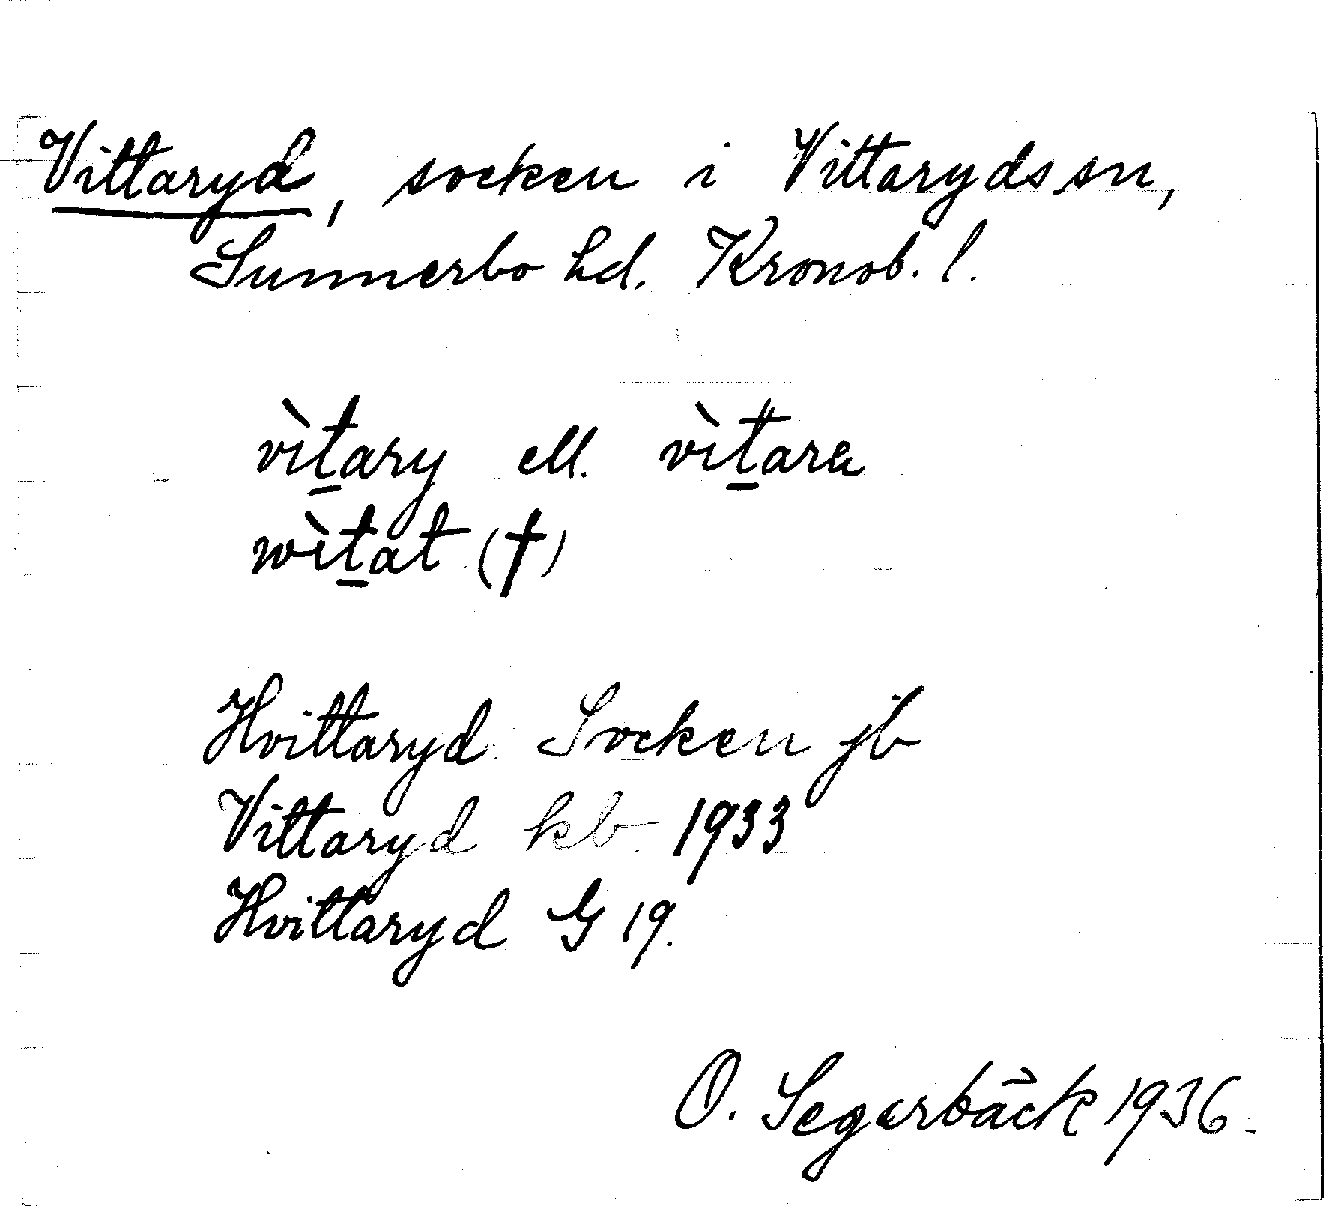 Vittaryd, socken i Vittaryds sn,
Sunnerbo hd. Kronob. l.
vìt̲ary ell. vìt̲ara
wìt̲at (†)
Hvittaryd Socken jb
Vittaryd kb 1933
Hvittaryd G 19.
O. Segerbäck 1936.